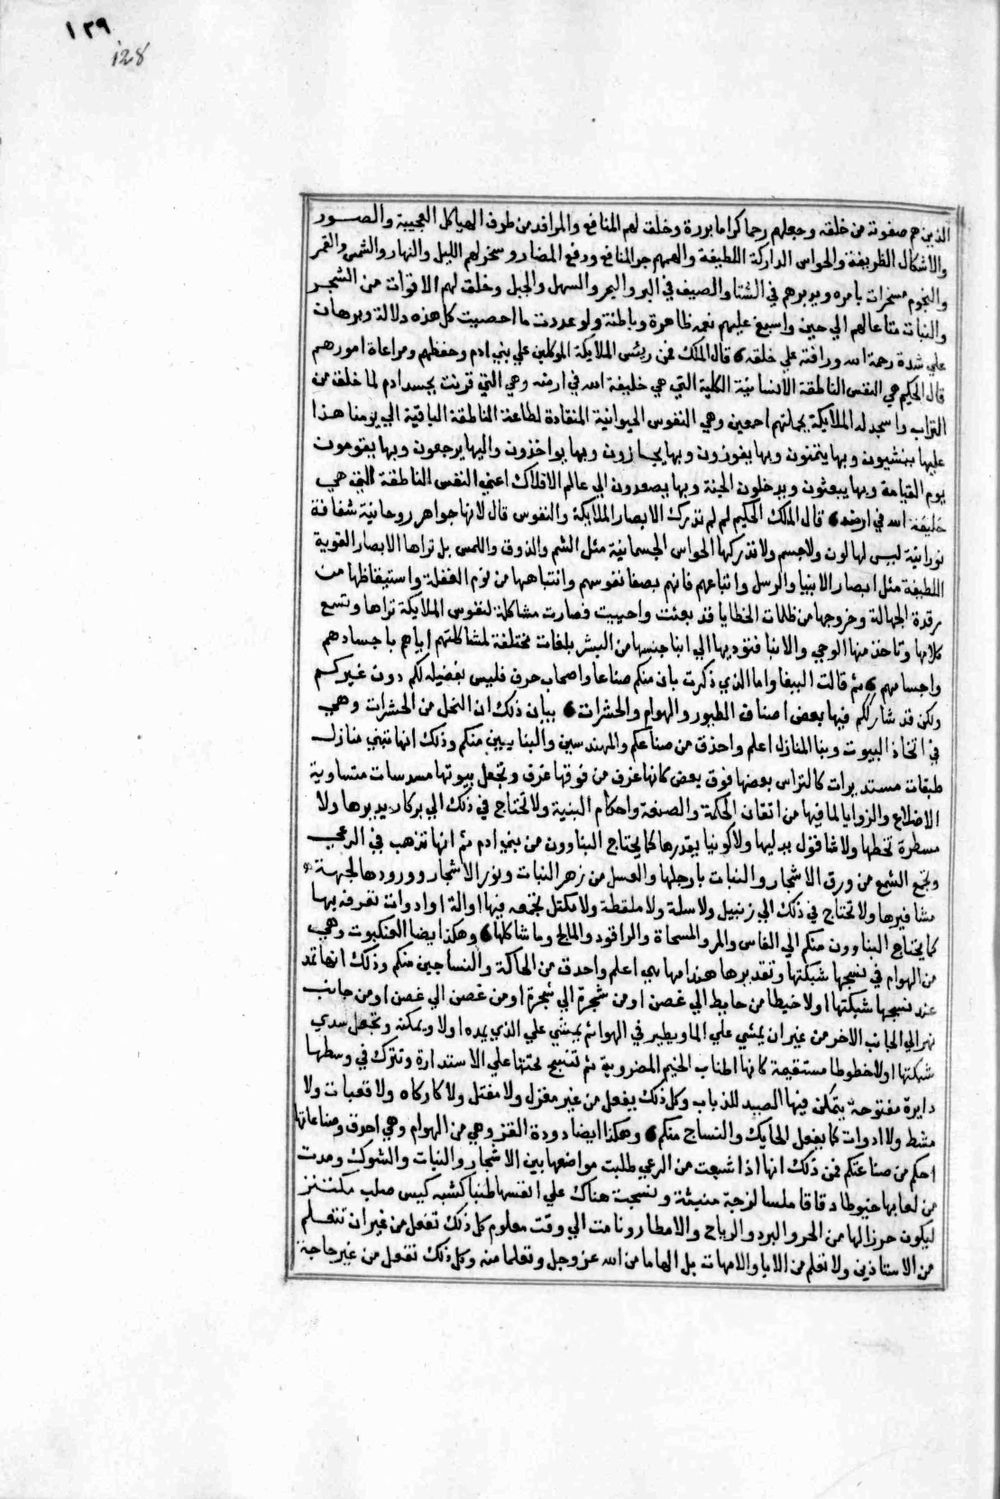 ١٢٩
128
الذين هم صفوته من خلقه وجعلهم رحما كراما بررة وخلق لهم المنافع والمرافد من طرف الهياكل العجيبة والصور
والاشكال الظريفة والحواس الداركة اللطيفة والهمهم جر المنافع ودفع المضار وسخر لهم الليل والنهار والشمس والقمر
والنجوم مسخرات بامره ويدبرهم في الشتا والصيف في البر والبحر والسهل والجبل وخلق لهم الاقوات من الشجر
والنبات متاعا لهم الي حين واسبغ عليهم نعمه ظاهرة وباطنة ولو عددت ما احصيت كل هذه دلالة وبرهان
علي شدة رحمة الله ورافته علي خلقه 6 قال الملك فمن ريئس الملايكة الموكلين علي بني ادم وحفظهم ومراعاة امورهم
قال الحكيم هي النفس الناطقة الانسانية الكلية التي هي خليفة الله في ارضه وهي التي قرنت بجسد ادم لما خلق من
التراب واسجد له الملايكة بجملتهم اجمعين وهي النفوس الحيوانية المنقادة لطاعة الناطقة الباقية الي يومنا هذا
عليها ينشيون وبها يتمنون وبها يفوزون وبها يجازون وبها يواخذون واليها يرجعون وبها يقومون
يوم القيامة وبها يبعثون ويدخلون الجنة وبها يصعدون الي عالم الافلاك اعني النفس الناطقة التي هي
خليفة الله في ارضه 6 قال الملك للحكيم لم لم تدرك الابصار الملايكة والنفوس قال لانها جواهر روحانية شفافة
نورانية ليس لها لون ولا جسم ولا تدركها الحواس الجسمانية مثل الشم والذوق واللمس بل تراها الابصار القوية
اللطيفة مثل ابصار الانبيا والرسل واتباعهم فانهم بصفا نفوسهم وانتباهها من نوم الغفلة واستيقاظها من
رقدة الجهالة وخروجها من ظلمات الخطايا قد بعثت واحييت فصارت مشاكلة لنفوس الملايكة تراها وتسمع
كلامها وتاخذ منها الوحي والانبا فتوديها الي ابنا جنسها من البشر بلغات مختلفة لمشاكلتهم اياهم باجسادهم
واجسامهم 6 ثم قالت الببغا واما الذي ذكرت بان منكم صناعا واصحاب حرف فليس بفضيله لكم دون غيركم
ولكن قد شارككم فيها بعض اصناف الطيور والهوام والحشرات 6 بيان ذلك ان النحل من الحشرات وهي
في اتخاذ البيوت وبنا المنازل اعلم واحذق من صناعكم والمهندسين والبنايين منكم وذلك انها تبني منازل
طبقات مستديرات كالتراس بعضها فوق بعض كانها غرف من فوقها غرف وتجعل بيوتها مسدسات متساوية
الاضلاع والزوايا لما فيها من اتقان الحكمة والصنعة واحكام البنية ولا تحتاج في ذلك الي بركار يديرها ولا
مسطرة تخطها ولا شاقول يدليها ولا كونيا يقدرها كما يحتاج البناوون من بني ادم ثم انها تذهب في الرعي
وتجمع الشمع من ورق الاشجار والنبات بارجلها والعسل من زهر النبات ونور الاشجار وورودها لجهة
مشافيرها ولا تحتاج في ذلك الي زنبيل ولا سلة ولا ملقطة ولا مكتل تجمعه فيها او الة او ادوات تعرفه بها
كما يحتاج البناوون منكم الي الفاس والمر والمسحاة والراقود والمالج وما شاكلها 6 وهكذا ايضا العنكبوت وهي
من الهوام في نسجها شبكتها وتقديرها هندامها هي اعلم واحدق من الحاكة والنساجين منكم وذلك انها تمد
عند نسجها شبكتها اولا خيطا من حايط الي غصن او من شجرة الي شجرة او من غصن الي غصن او من جانب
نهر الي الجانب الاخر من غير ان يمشي علي الما ويطير في الهوا ثم يمشي علي الذي يمده اولا ويمكنه وتجعل سدي
شبكتها اولا خطوطا مستقيمة كانها اطناب الخيم المضروبة ثم تنسج لحمتها علي الاستدارة وتترك في وسطها
دايرة مفتوحة يتمكن فيها الصيد للذباب وكل ذلك يفعل من غير مغزل ولا مفتل ولا كاركاه ولا قصبات ولا
مشط ولا ادوات كما يفعل الحايك والنساج منكم 6 وهكذا ايضا دودة القز وهي من الهوام وهي احدق وصناعاتها
احكم من صناعتكم فمن ذلك انها اذا شبعت من الرعي طلبت مواضعها بين الاشجار والنبات والشوك ومدت
من لعابها خيوطا دقاقا ملسا لزجة متينة ونسجت هناك علي انفسها طنبا كشبه كيس صلب مكتنز
ليكون حرزا لها من الحر والبرد والرياح والامطار ونامت الي وقت معلوم كل ذلك تفعل من غير ان تتعلم
من الاستاذين ولا تعلم من الابا والامهات بل الهاما من الله عز وجل وتعلما منه وكل ذلك تفعل من غير حاجة